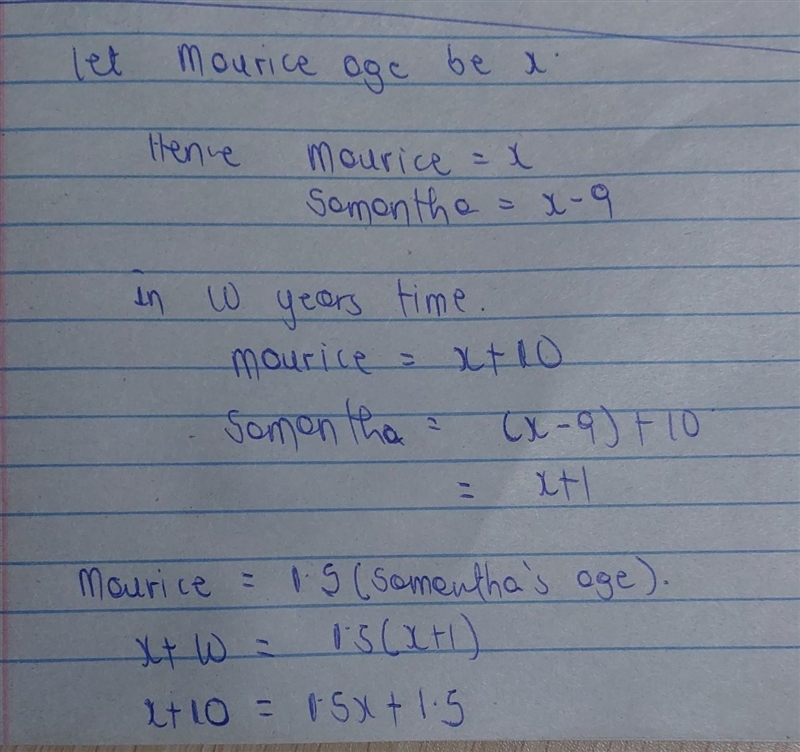 let Maurice age be x.
Hence Maurice = x
Samantha = x-9
in 10 years time.
Maurice = x+10
Samantha = (x-9)+10
= x+1
Maurice = 1.5(Samantha's age).
x+10 = 1.5(x+1)
x+10 = 1.5x+1.5